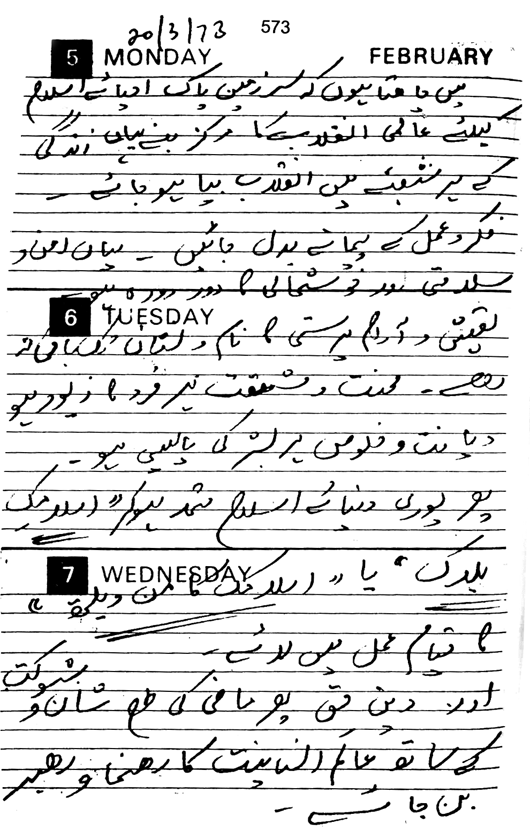 20/3/73 573
5 MONDAY FEBRUARY
میں چاہتا ہوں کہ سرزمین پاک احیائے اسلام
کیلئے عالمی انقلاب کا مرکز بنے یہاں زندگی
کے ہر شعبے میں انقلاب بپا ہو جائے ۔
فکر و عمل کے پیمانے بدل جائیں ۔ یہاں امن و
سلامتی اور خوشحالی کا دور دورہ ہو ۔
6 TUESDAY
تعیش و آرام پرستی کا نام و نشان تک باقی نہ
رہے ۔ محنت و مشقت ہر فرد کا زیور ہو
دیانت و خلوص ہر بشر کی پالیسی ہو ۔
پھر پوری دنیائے اسلام متحد ہو کر "اسلامک
7 WEDNESDAY
بلاک" یا "اسلامک کامن ویلتھ"
کا قیام عمل میں لائے ۔
اور دین حق پھر ماضی کی طرح شان و شوکت
کے ساتھ عالم انسانیت کا رہنما و رہبر
بن جائے ۔